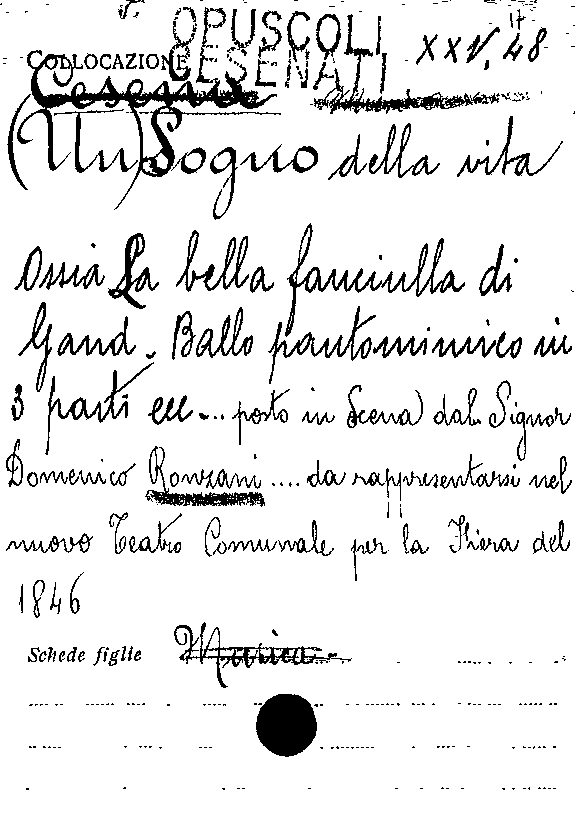 OPUSCOLI
CESENATI
COLLOCAZIONE
XXV. 48
Cesena
(Un) Sogno della vita
Ossia La bella fanciulla di
Gand. Ballo pantomimico in
3 parti ecc... posto in Scena dal Signor
Domenico Ronzani .... da rappresentarsi nel
nuovo Teatro Comunale per la Fiera del
1846
Schede figlie Musica